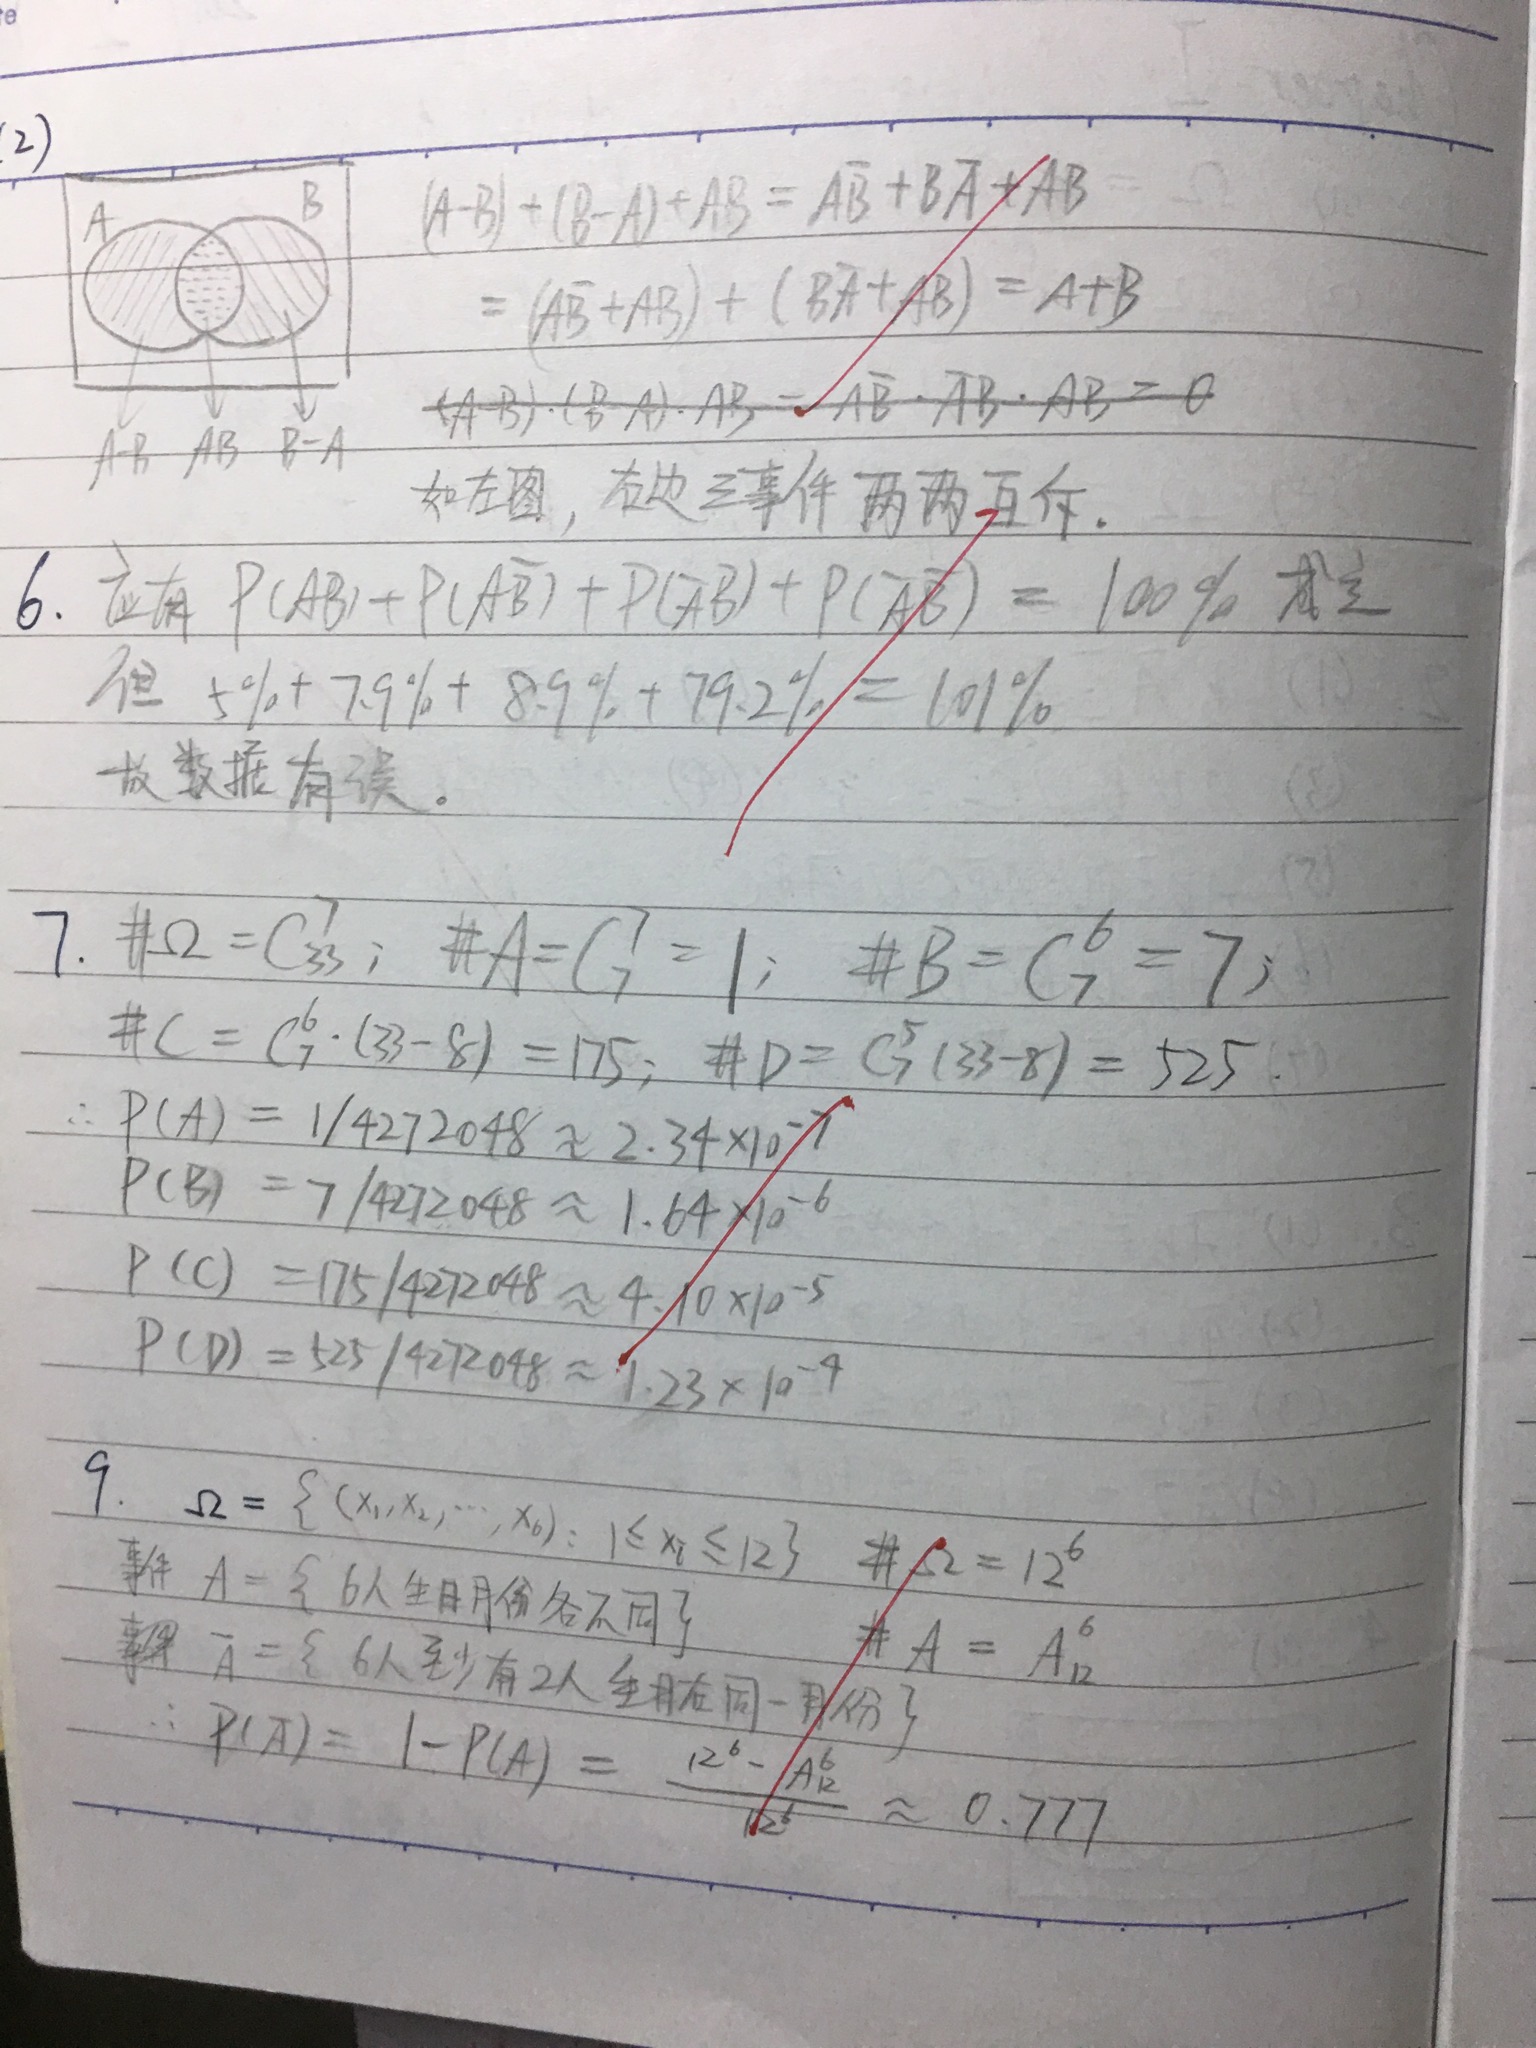 te
(2)
A B
(A-B)+(B-A)+AB = AB̅+BA̅+AB
= (AB̅+AB)+(BA̅+AB) = A+B
(A-B)·(B-A)·AB = AB̅·A̅B·AB = 0
A-B AB B-A
如左图,右边三事件两两互斥.
6. 应有 P(AB)+P(AB̅)+P(A̅B)+P(A̅B̅) = 100%
但 5%+7.9%+8.9%+79.2% = 101%
故数据有误。
7. #Ω = C₃₃⁷; #A = C₇⁷ = 1; #B = C₇⁶ = 7;
#C = C₇⁶·(33-8) = 175; #D = C₇⁵(33-8) = 525.
∴ P(A) = 1/4272048 ≈ 2.34×10⁻⁷
P(B) = 7/4272048 ≈ 1.64×10⁻⁶
P(C) = 175/4272048 ≈ 4.10×10⁻⁵
P(D) = 525/4272048 ≈ 1.23×10⁻⁴
9. Ω = {(x₁,x₂,…,x₆): 1≤xᵢ≤12} #Ω = 12⁶
事件 A = {6人生日月份各不同} #A = A₁₂⁶
事件 A̅ = {6人至少有2人生日在同一月份}
∴ P(A̅) = 1-P(A) = (12⁶-A₁₂⁶)/12⁶ ≈ 0.777